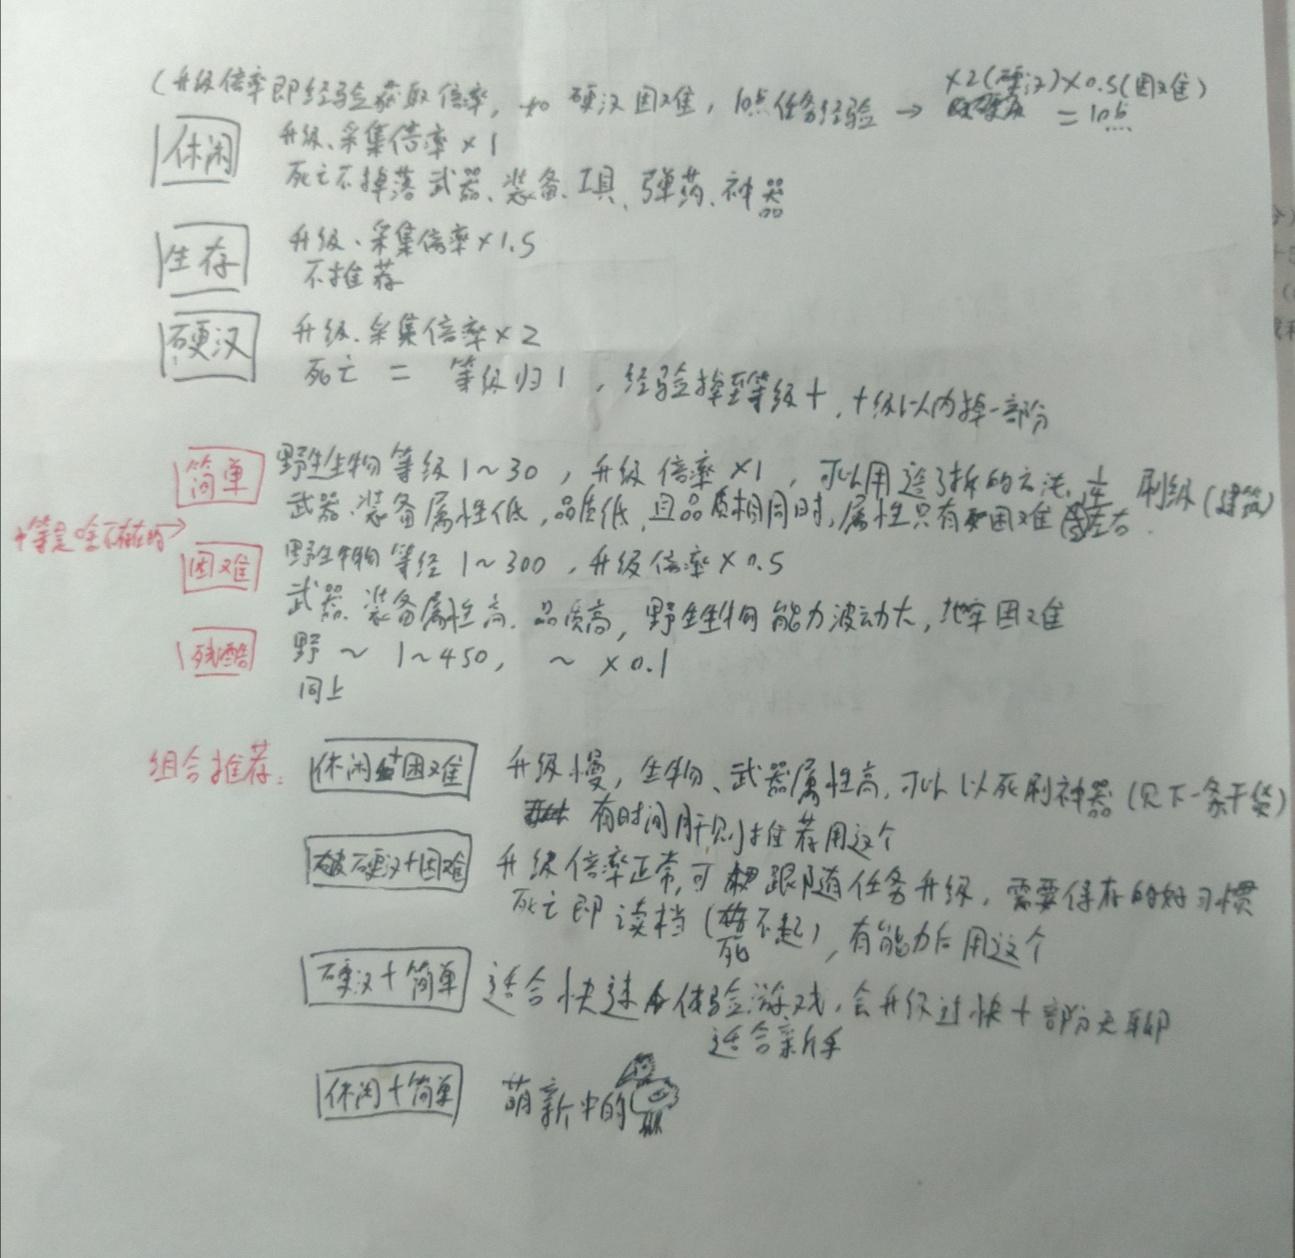 (升级倍率即经验获取倍率, 如硬汉困难, 10点任务经验 → ×2(硬汉)×0.5(困难)
= 10点
休闲 升级、采集倍率×1
死亡不掉落武器、装备、工具、弹药、神器
生存 升级、采集倍率×1.5
不推荐
硬汉 升级、采集倍率×2
死亡 = 等级归1, 经验掉至等级十, 十级以内掉一部分
简单 野生生物等级1~30, 升级倍率×1, 可以用造了拆的方法 刷级(建筑)
武器、装备属性低, 品质低, 且品质相同时, 属性只有困难 左右.
中等是啥不存在的→
困难 野生生物等经1~300, 升级倍率×0.5
武器、装备属性高、品质高, 野生生物能力波动大, 地牢困难
残酷 野 ~ 1~450, ~ ×0.1
同上
组合推荐:
休闲+困难 升级慢, 生物、武器属性高, 可以以死刷神器(见下一条干货)
有时间肝则推荐用这个
硬汉+困难 升级倍率正常, 可跟随任务升级, 需要保存的好习惯
死亡即读档(死不起), 有能力后用这个
硬汉+简单 适合快速体验游戏, 会升级过快+部分无聊
适合新手
休闲+简单 萌新中的